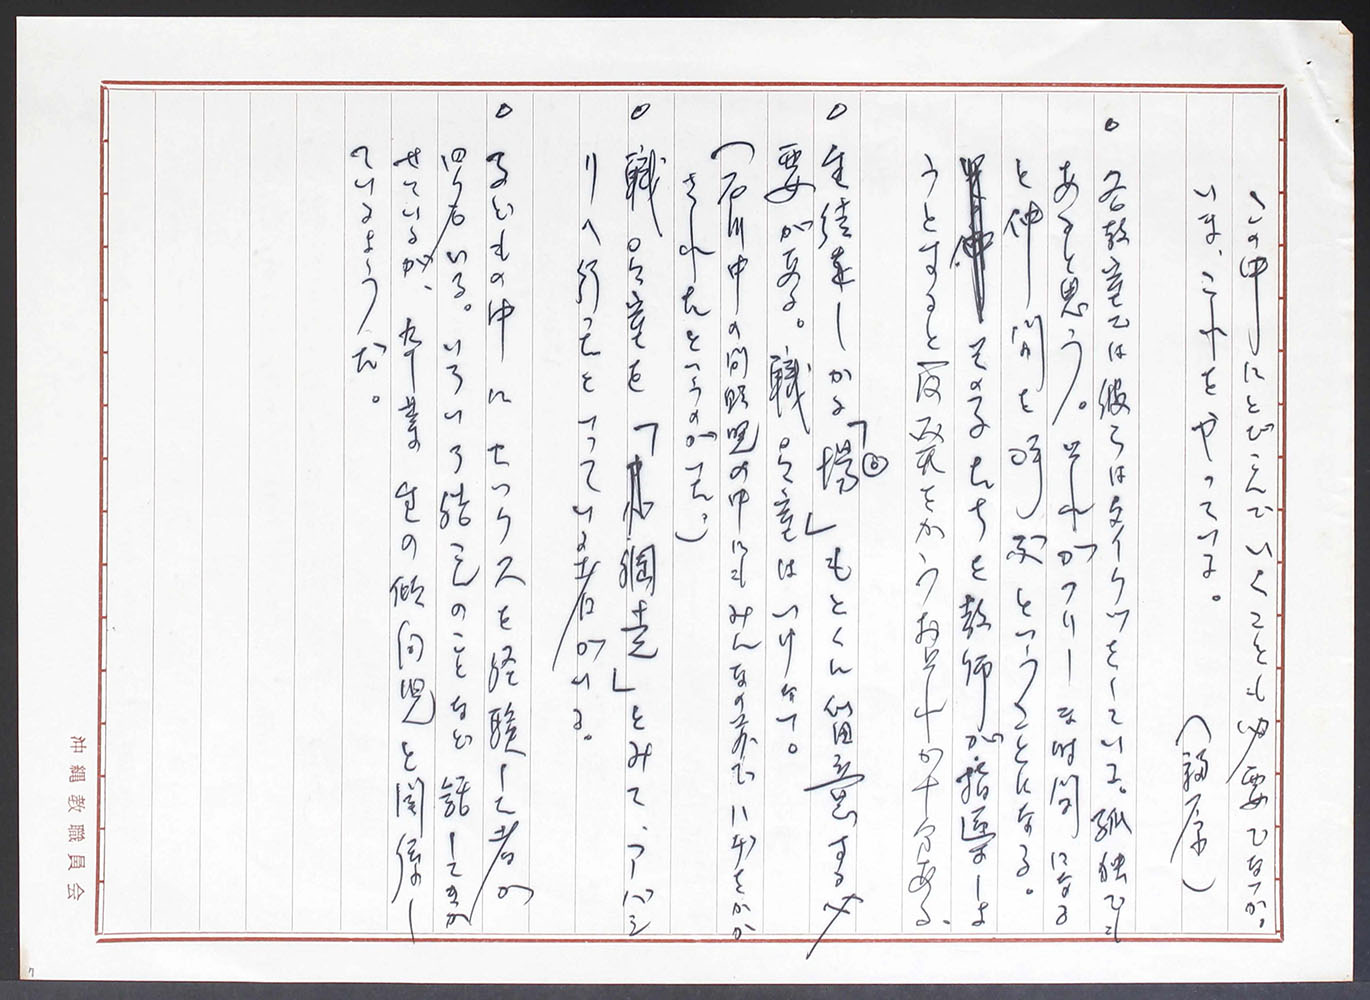 この中にとびこんでいくことも必要でないか。
いま、これをやっている。
○各教室では彼らはタイクツをしている。孤独でも
あると思う。それがフリーな時間になる
と仲間を呼ぶということになる。
その子たちを教師が指導しよ
うとすると反撥をかうおそれが十分ある、
○生徒達しかる「場」もとくに留意する必
要がある。職員室はいけない。
（石川中の問題児の中にもみんなの前でハヂをかか
されたというのがいた。）
○職員室を「」とみて、アバシ
リへ行ったといっている者がいる。
○子どもの中にもいクスを経験した者が
四名いる。いろいろ結えのことなど話してきか
せているが、卒業生の傾向児と関係し
ているようだ。
沖縄教職員会
7